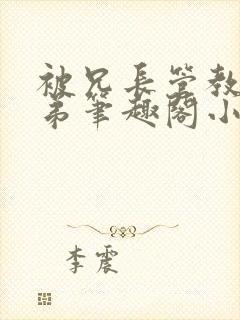 被兄长管教
弟笔趣阁小
李震